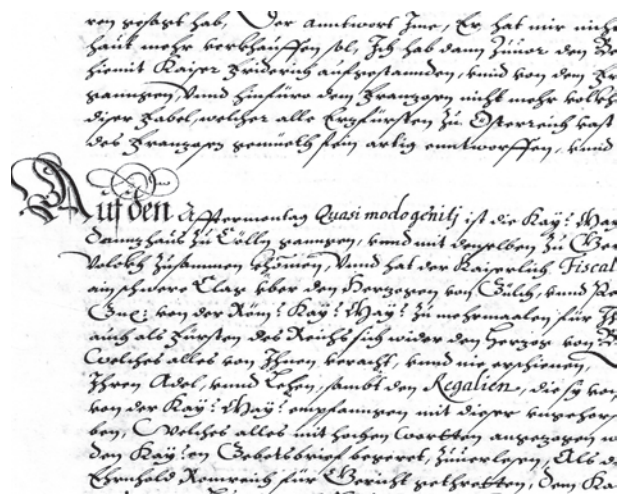 ren gesagt hab, Der anntwort Ime, Er hat mir nicht
haut mehr verkhauffen sol, Ich hab dann zuuor den Be
hiemit Kaiser Friderich aufgestannden, vnnd von dem Fr
ganngen, vnnd hinfüro dem Franzosen nicht mehr volkh
diser Fabel, welcher alle Erzfürsten zu Österreich vast
des Franzosen gemüeth fein artig enntworffen, vnnd
Auf den Afftermontag Quasimodogenitj ist die Kay: May
Dannzhaus zu Cölln ganngen, vnnd mit denselben zu Ger
Volckh zusammen khomen, Vnnd hat der Kaiserlich Fiscal
ain schwere Clag über den Herzogen von Gülch, vnnd
von der Röm: Kay: May: zu mehrmaalen für
auch als Fürsten des Reichs sich wider den Herzog von B
Welches alles von Ihnen veracht, vnnd nie erschienen,
Ihren Adel, vnnd Lehen, sambt den Regalien, die sy von
von der Kay: May: empfanngen mit diser vngehors
ben, Welches alles mit hochen wortten angezogen w
den Kay:en Gebotsbrief begeret, zuuerlesen, Als d
Ehrnhold Romreich für Gericht gethretten, dem Ka